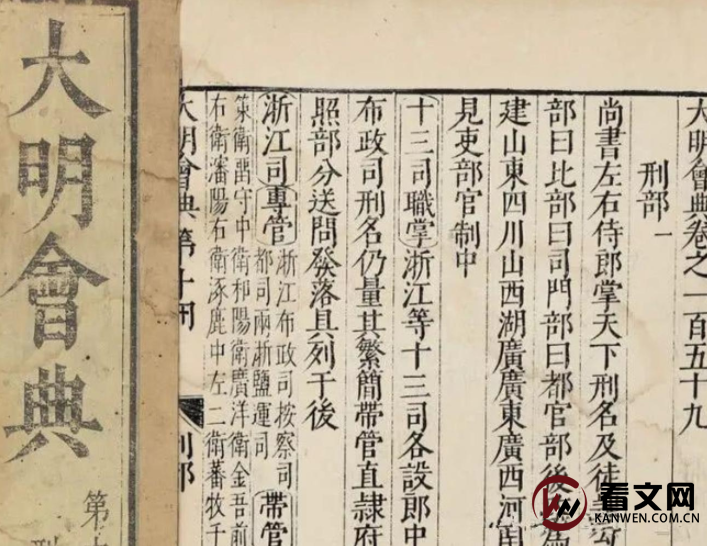 大明會典卷之一百五十九
刑部一
尚書左右侍郎掌天下刑名及徒
部曰比部曰司門部曰都官部後
建山東四川山西湖廣廣東廣西河南
見吏部官制中
十三司職掌浙江等十三司各設郎中
布政司刑名仍量其繁簡帶管直隸府
照部分送問發落具列于後
浙江司專管浙江布政司按察司
都司兩浙鹽運司帶管
策衛留守中衛和陽衛廣洋衛金吾前
右衛瀋陽右衛涿鹿中左二衛蕃牧千
大明會典第十
刑部
大明會典
第
刑
看文网
KANWEN.COM.CN